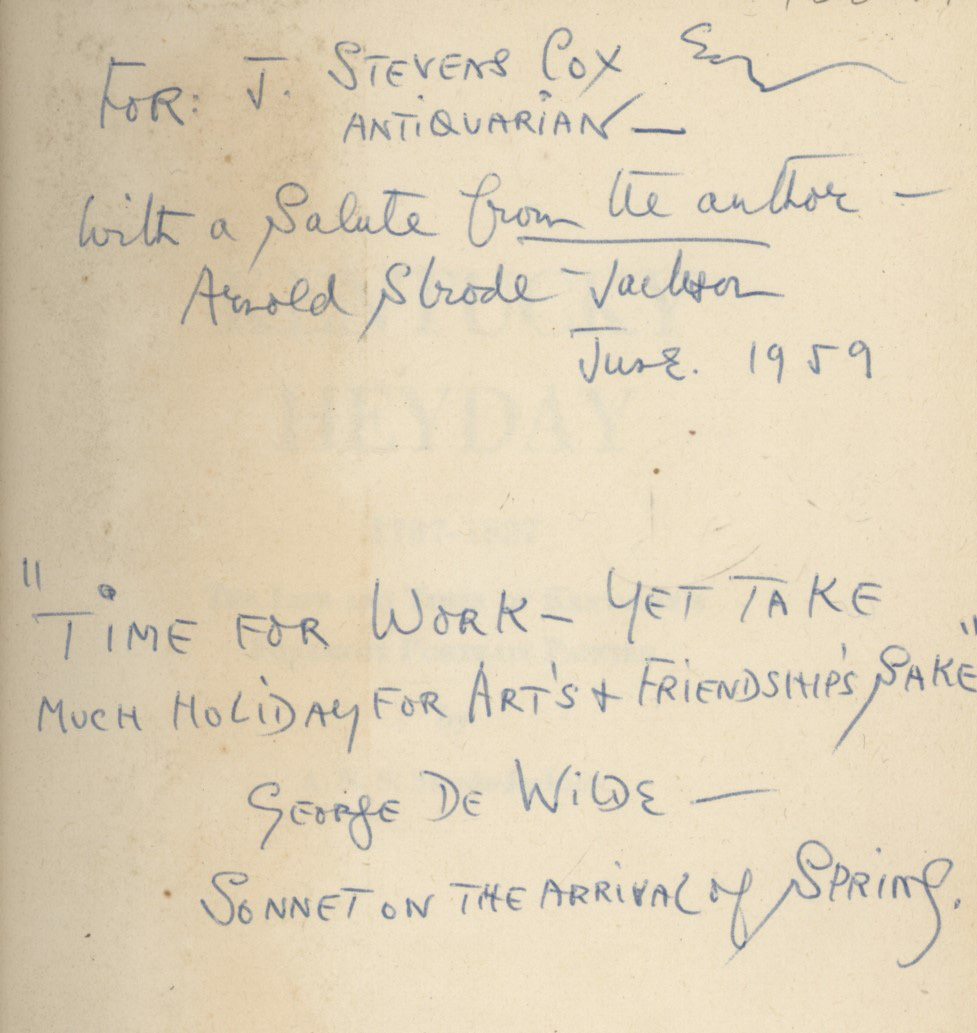 FOR: J. STEVENS COX Esq
ANTIQUARIAN —
With a Salute from the author —
Arnold Strode-Jackson
June. 1959
HEYDAY
"TIME FOR WORK — YET TAKE
MUCH HOLIDAY FOR ART'S + FRIENDSHIP'S SAKE"
GEORGE DE WILDE —
SONNET ON THE ARRIVAL of SPRING.